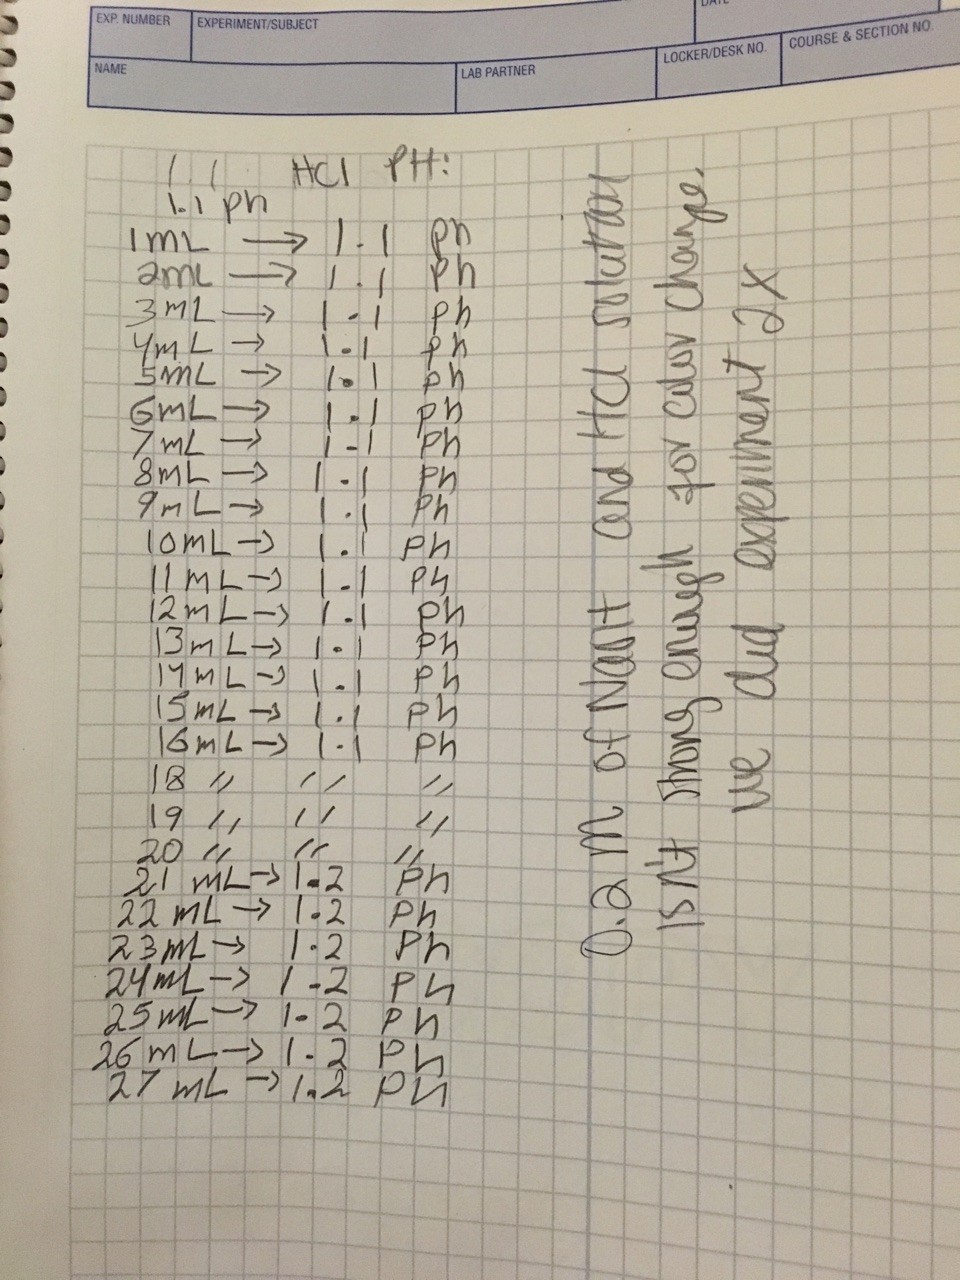 EXP. NUMBER
EXPERIMENT/SUBJECT
DATE
NAME
LAB PARTNER
LOCKER/DESK NO.
COURSE & SECTION NO.
HCl PH:
1.1 ph
1mL → 1.1 ph
2mL → 1.1 ph
3mL → 1.1 ph
4mL → 1.1 ph
5mL → 1.1 ph
6mL → 1.1 ph
7mL → 1.1 ph
8mL → 1.1 ph
9mL → 1.1 ph
10mL → 1.1 ph
11mL → 1.1 ph
12mL → 1.1 ph
13mL → 1.1 ph
14mL → 1.1 ph
15mL → 1.1 ph
16mL → 1.1 ph
18 〃 〃 〃
19 〃 〃 〃
20 〃 〃 〃
21 mL → 1.2 ph
22 mL → 1.2 ph
23mL → 1.2 ph
24mL → 1.2 ph
25mL → 1.2 ph
26 mL → 1.2 ph
27 mL → 1.2 ph
0.2 M of NaOH and HCl solution
isn't strong enough for color change.
we did experiment 2x